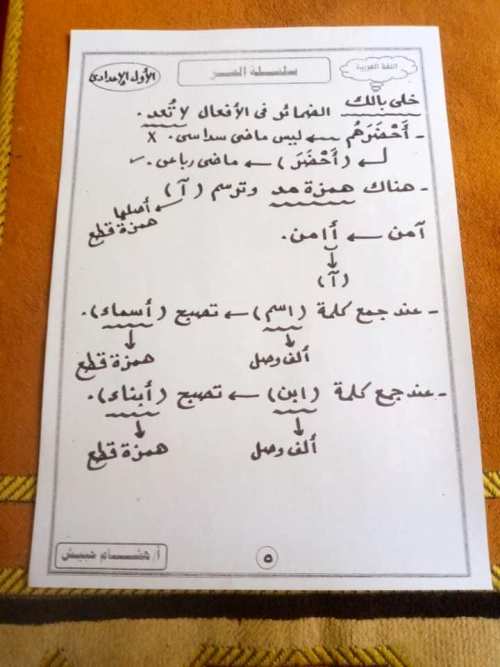 اللغة العربية
سلسلة العز
الأول الإعدادى
خلى بالك الضمائر فى الأفعال لا تُعد.
- أَحْضَرَهُم ← ليس ماضى سداسى. X
(أَحْضَرَ) ← ماضى رباعى. ✓
- هناك همزة مد وترسم (آ) ← أصلها همزة قطع
آمن ← أامن.
(آ)
- عند جمع كلمة (اسم) ← تصبح (أسماء).
ألف وصل همزة قطع
- عند جمع كلمة (ابن) ← تصبح (أبناء).
ألف وصل همزة قطع
أ/ هشام حبيش
٥